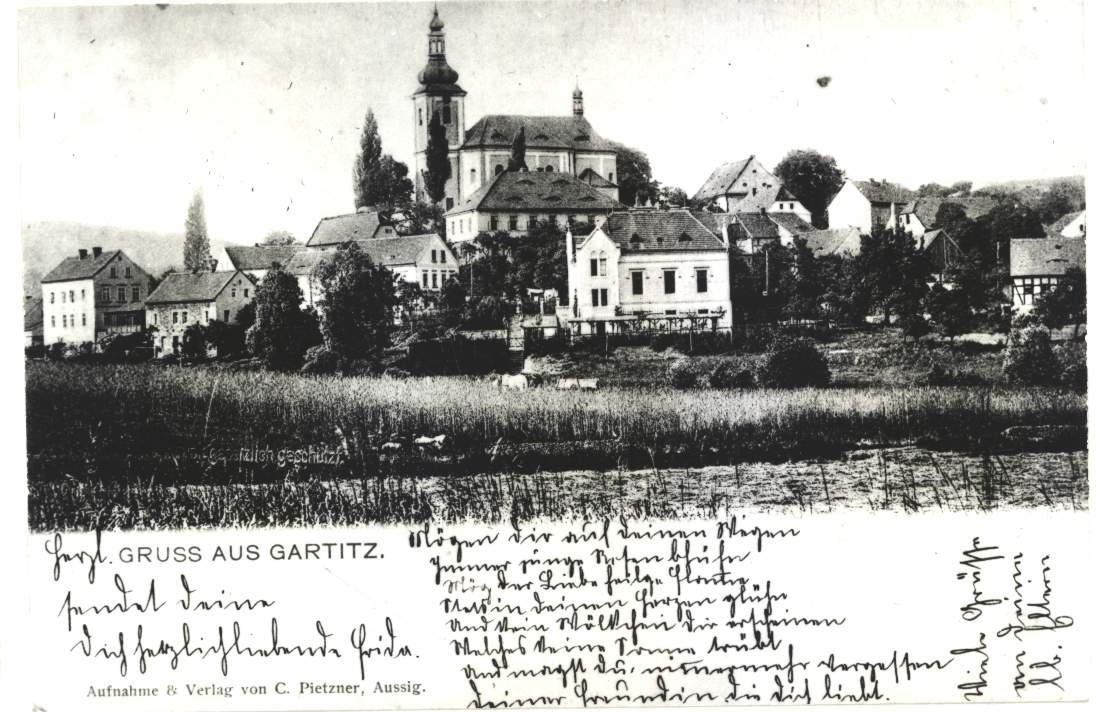 gesetzlich geschützt
Herzl. GRUSS AUS GARTITZ.
sendet deine
Dich herzlichliebende Frida.
Aufnahme & Verlag von C. Pietzner, Aussig.
Mögen dir auf deinen Wegen
Immer junge Rosen blühn
Mög der Liebe heilge Flamme
Stets in deinen Herzen glühn
Und kein Wölkchen dir erscheinen
Welches deine Sonne trübt
Und magst du, nimmermehr vergessen
Deiner Freundin die dich liebt.
Viele Grüsse
an Deine
lb. Eltern